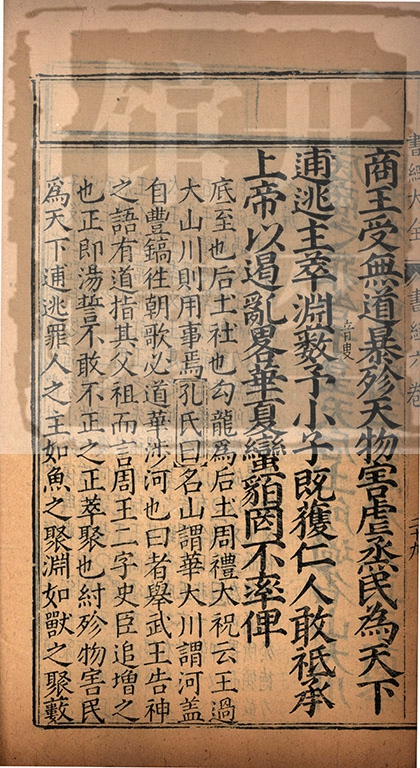 商王受無道暴殄天物害虐烝民為天下
逋逃主萃淵藪予小子既獲仁人敢祗承
上帝以遏亂畧華夏蠻貊罔不率俾
音叟
底至也后土社也勾龍為后土周禮大祝云王過
大山川則用事焉孔氏曰名山謂華大川謂河蓋
自豐鎬徃朝歌必道華涉河也曰者舉武王告神
之語有道指其父祖而言周王二字史臣追增之
也正即湯誓不敢不正之正萃聚也紂殄物害民
為天下逋逃罪人之主如魚之聚淵如獸之聚藪